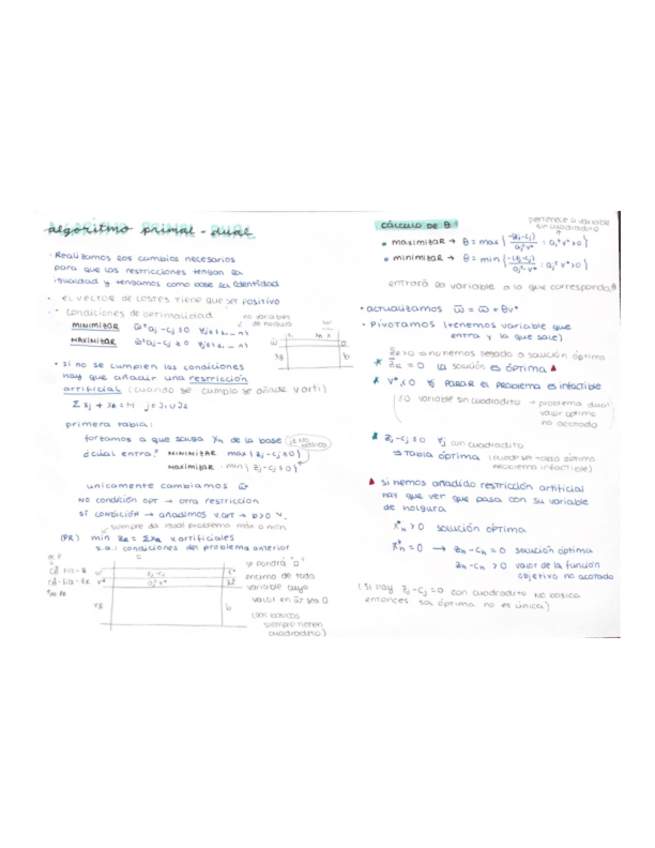 algoritmo primal-dual
· Realizamos los cambios necesarios
para que las restricciones tengan la
igualdad y tengamos como base la identidad
· EL VECTOR DE COSTES TIENE QUE SER POSITIVO
· condiciones de optimalidad
no variables
de holgura
MINIMIZAR
MAXIMIZAR
· si no se cumplen las condiciones
hay que añadir una restricción
artificial (cuando se cumpla se añade v.arti)
primera tabla:
forzamos a que salga Xn de la base
¿cuál entra? MINIMIZAR max { zj-cj ≥0 }
MAXIMIZAR min { zj-cj ≤0 }
unicamente cambiamos w̄
NO CONDICIÓN OPT → otra restricción
SÍ CONDICIÓN → añadimos v.art → b>0 v.
siempre da igual problema máx o mín
(PR) min ZR = ΣXa x.artificiales
s.a.: condiciones del problema anterior
zj-cj
XB
b
se pondrá "□"
encima de toda
variable cuyo
valor en w̄ sea 0
(las básicas
siempre tienen
cuadradito)
CÁLCULO DE θ:
pertenece a variable
sin cuadradito
• maximizar → θ = max { -(zj-cj) / aj²v* : aj²v*>0 }
• minimizar → θ = min { -(zj-cj) / aj²v* : aj²v*>0 }
entrará la variable a la que corresponda θ
· actualizamos w̄ = w̄ + θv*
· Pivotamos (tenemos variable que
entra y la que sale)
>0 aún no hemos llegado a solución óptima
= 0 la solución es óptima ▲
* V* ≤0 PARAR EL PROBLEMA ES INFACTIBLE
variable sin cuadradito → problema dual
valor óptimo
no acotado
zj-cj ≤ 0 ∀j con cuadradito
⇒ Tabla óptima (puede ser tabla óptima
problema infactible)
▲ si hemos añadido restricción artificial
hay que ver que pasa con su variable
de holgura
X*n >0 solución óptima
X*n =0 → zn-cn = 0 solución óptima
zn-cn >0 valor de la función
objetivo no acotado
(si hay zj-cj =0 con cuadradito NO básica
entonces sol. óptima no es única)